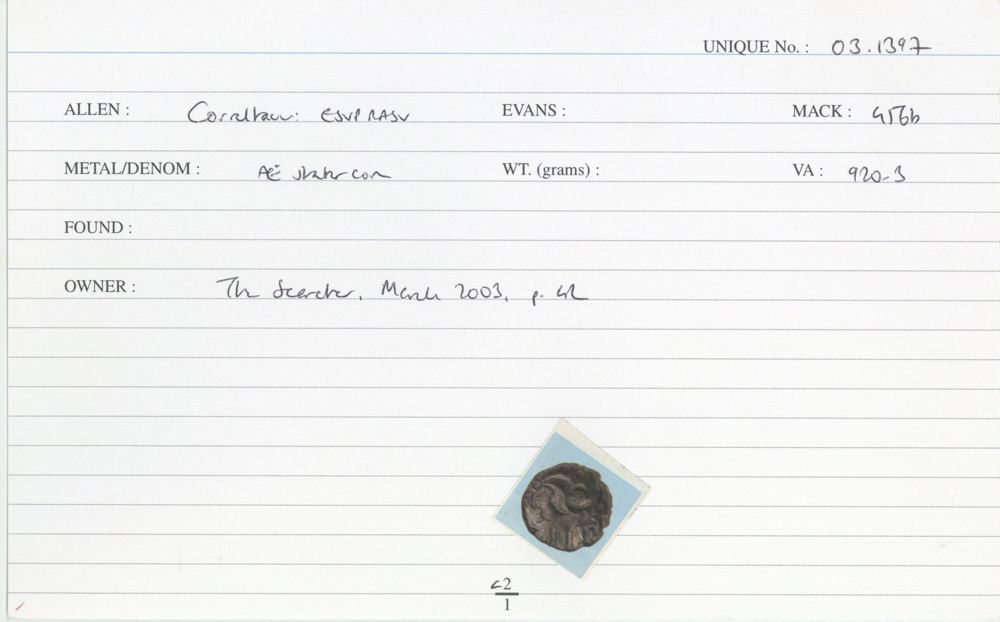 UNIQUE No. : 03.1397
ALLEN : Corieltauvi: ESVPRASV EVANS : MACK : 456b
METAL/DENOM : AE stater core WT. (grams) : VA : 920-3
FOUND :
OWNER : The Searcher, March 2003, p. 42
c2
1